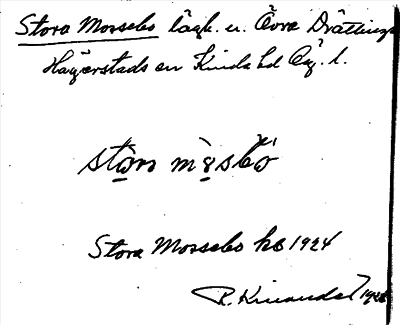 Stora Mossebo lägh. u. Övra Drättinge
Hägerstads sn Kinda hd Ög. l.
stōra mòsebō
Stora Mossebo hb 1924
R. Kinander 1926